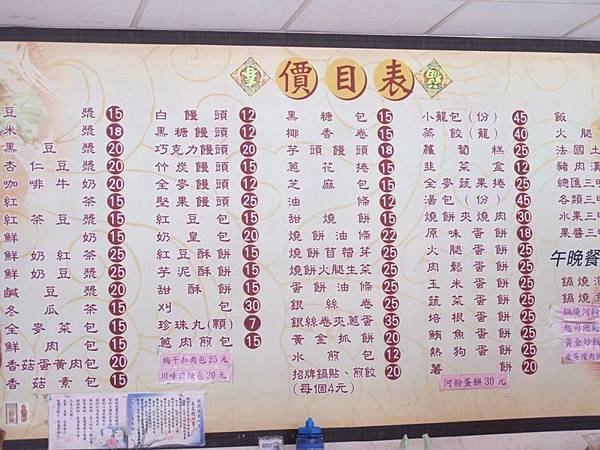 價目表
豆漿 15
米漿 18
黑豆漿 20
杏仁豆漿 20
咖啡牛奶 20
紅茶 15
紅茶豆漿 15
鮮奶 15
鮮奶紅茶 25
鮮奶豆漿 25
鹹豆漿 20
冬瓜茶 15
全麥菜包 15
鮮肉包 15
香菇蛋黃肉包 20
香菇素包 15
白饅頭 12
黑糖饅頭 12
巧克力饅頭 20
竹炭饅頭 15
全麥饅頭 12
堅果饅頭 25
紅豆包 15
奶皇包 20
紅豆酥餅 15
芋泥酥餅 15
甜酥餅 15
刈包 30
珍珠丸(顆) 7
蔥肉煎包 15
梅干扣肉包25元
黑糖包 15
椰香卷 15
芋頭饅頭 18
蔥花捲 15
芝麻包 15
油條 12
甜燒餅 15
燒餅油條 22
燒餅苜蓿芽 25
燒餅火腿生菜 25
蛋餅油條 25
銀絲卷 25
銀絲卷夾蔥蛋 35
黃金抓餅 20
水煎包 12
招牌鍋貼、煎餃 20
(每個4元)
小籠包(份) 45
蒸餃(籠) 40
蘿蔔糕 25
韭菜盒 12
全麥蔬果捲 25
湯包(份) 45
燒餅夾燒肉 30
原味蛋餅 18
火腿蛋餅 25
肉鬆蛋餅 25
玉米蛋餅 25
蔬菜蛋餅 25
培根蛋餅 25
鮪魚蛋餅 25
熱狗蛋餅 25
薯餅 20
河粉蛋餅30元
飯
火腿
法國土
豬肉漢
總匯三明
各類三明
水果三明
果醬三明
午晚餐
鍋燒
鍋燒
鍋燒河粉
黃金炒板
皮蛋瘦肉